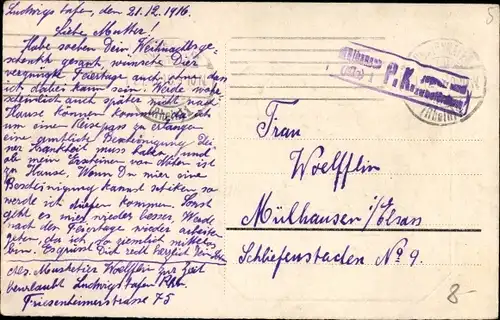 Ludwigshafen, den 21.12.1916.
Liebe Mutter!
Habe soeben Dein Weihnachtsge-
schenk gesant, wünsche Dir
vergnügte Feiertage auch ohne dass
ich dabei kann sein. Werde wahr-
scheinlich auch später nicht nach
Hause können kommen da ich
um einen Reisepass zu erlangen
eine amtliche Bescheinigung Dei-
ner Krankheit muss haben und
ob mein Erscheinen von Nöten ist
zu Hause. Wenn Du mir eine
Bescheinigung kannst schiken so
werde ich kommen. Sonst
geht es mir wieder besser, Werde
nach den Feiertage wieder arbeiten
da ich so ziemlich mittellos
bin. Es grüsst Dich recht herzlich
Musketier Woelfflin zur Zeit
beurlaubt Ludwigshafen Rh.
Friesenheimerstrasse 75
P.K.
(Rhein)
Frau
Woelfflin
Mülhausen i/Elsass
Schliefenstaden No 9.
8-